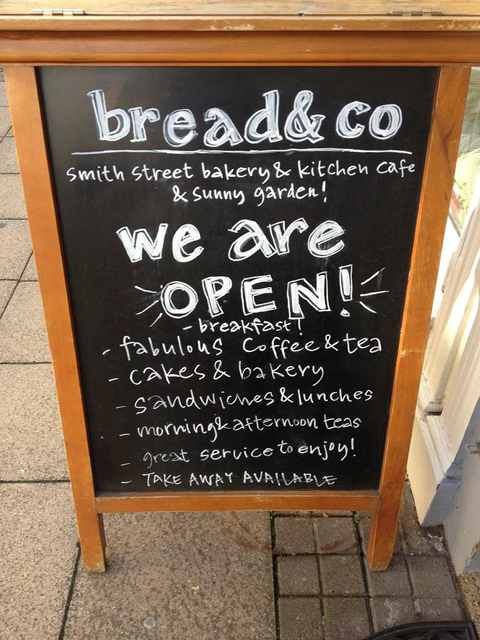 bread & co
smith street bakery & kitchen cafe
& sunny garden!
we are
OPEN!
- breakfast!
- fabulous coffee & tea
- cakes & bakery
- sandwiches & lunches
- morning & afternoon teas
- great service to enjoy!
- TAKE AWAY AVAILABLE